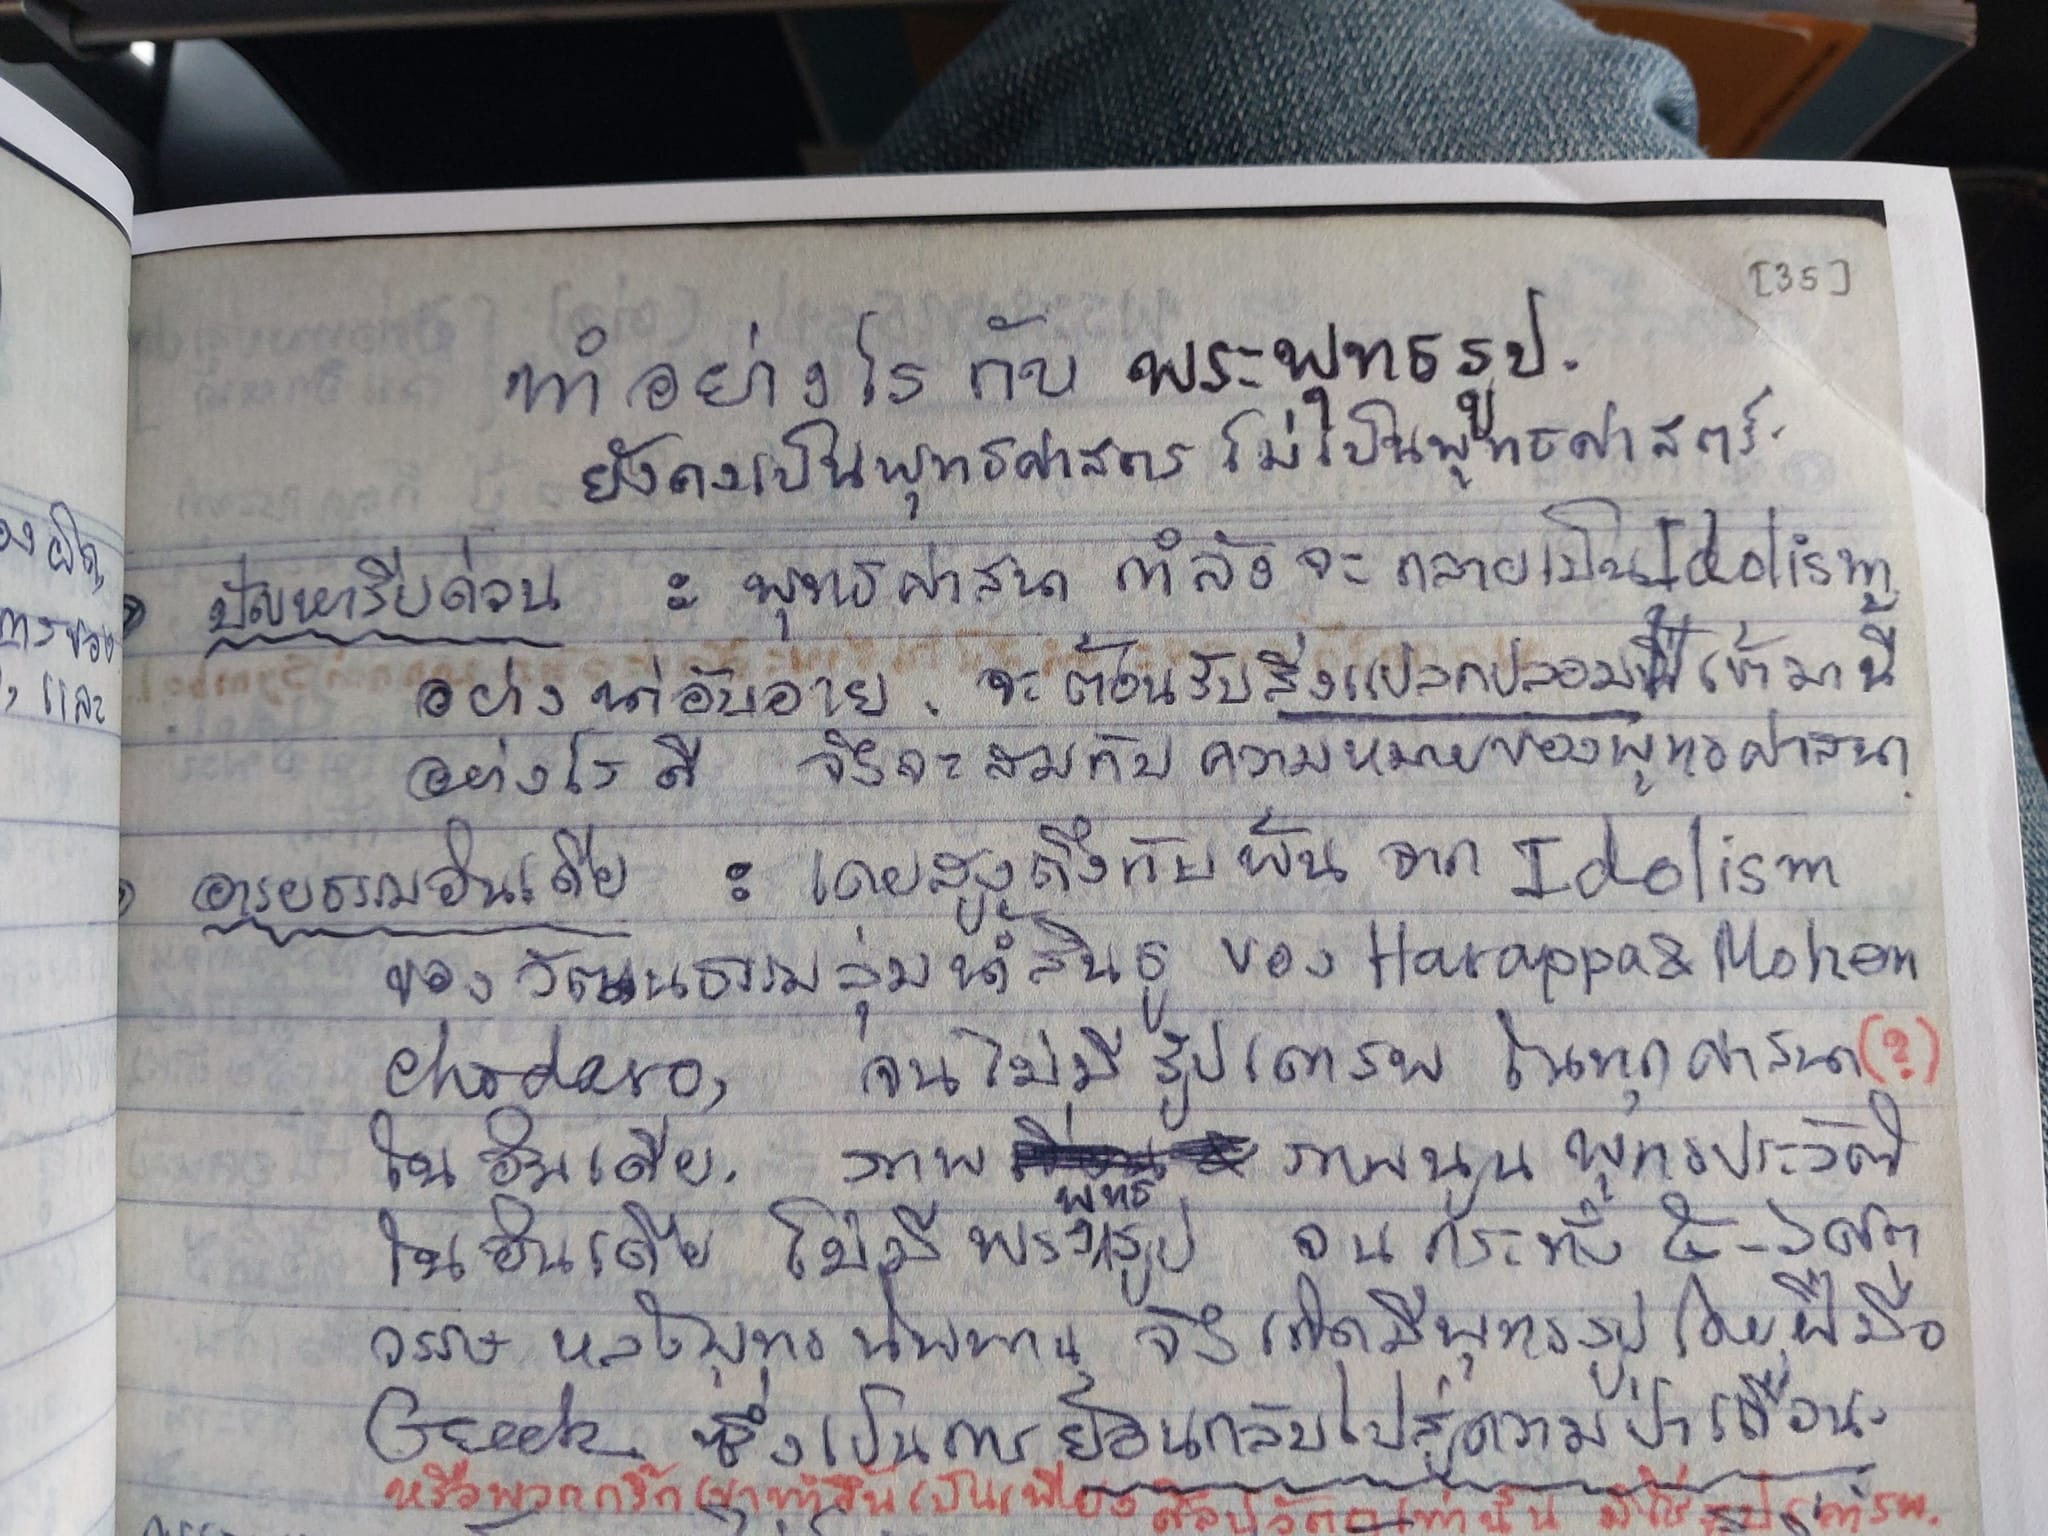 [35]
ทำอย่างไรกับ พระพุทธรูป.
ยังคงเป็นพุทธศาสตร ไม่เป็นพุทธศาสตร์.
ปัญหารีบด่วน : พุทธศาสนา กำลังจะกลายเป็น Idolism
อย่างน่าอับอาย. จะต้อนรับสิ่งแปลกปลอมที่เข้ามานี้
อย่างไรดี จึงจะสมกับความหมายของพุทธศาสนา.
อารยธรรมอินเดีย : เคยสูงถึงกับพ้นจาก Idolism
ของวัฒนธรรมลุ่มน้ำสินธู ของ Harappa & Mohen
chodaro, จนไม่มีรูปเคารพ ในทุกศาสนา (?)
ในอินเดีย. ภาพ ภาพนูน พุทธประวัติ
พุทธ
ในอินเดีย ไม่มีพระรูป จนกระทั่ง ๕-๖ ศต
วรรษ หลังพุทธนิพพาน, จึงเกิดมีพุทธรูปโดยฝีมือ
Greek ซึ่งเป็นการย้อนกลับไปสู่ความป่าเถื่อน.
หรือพวกกรีกเขาทำขึ้นเป็นเพียงศิลปวัตถุเท่านั้น มิใช่รูปเคารพ.
องผิด,
การของ
, และ